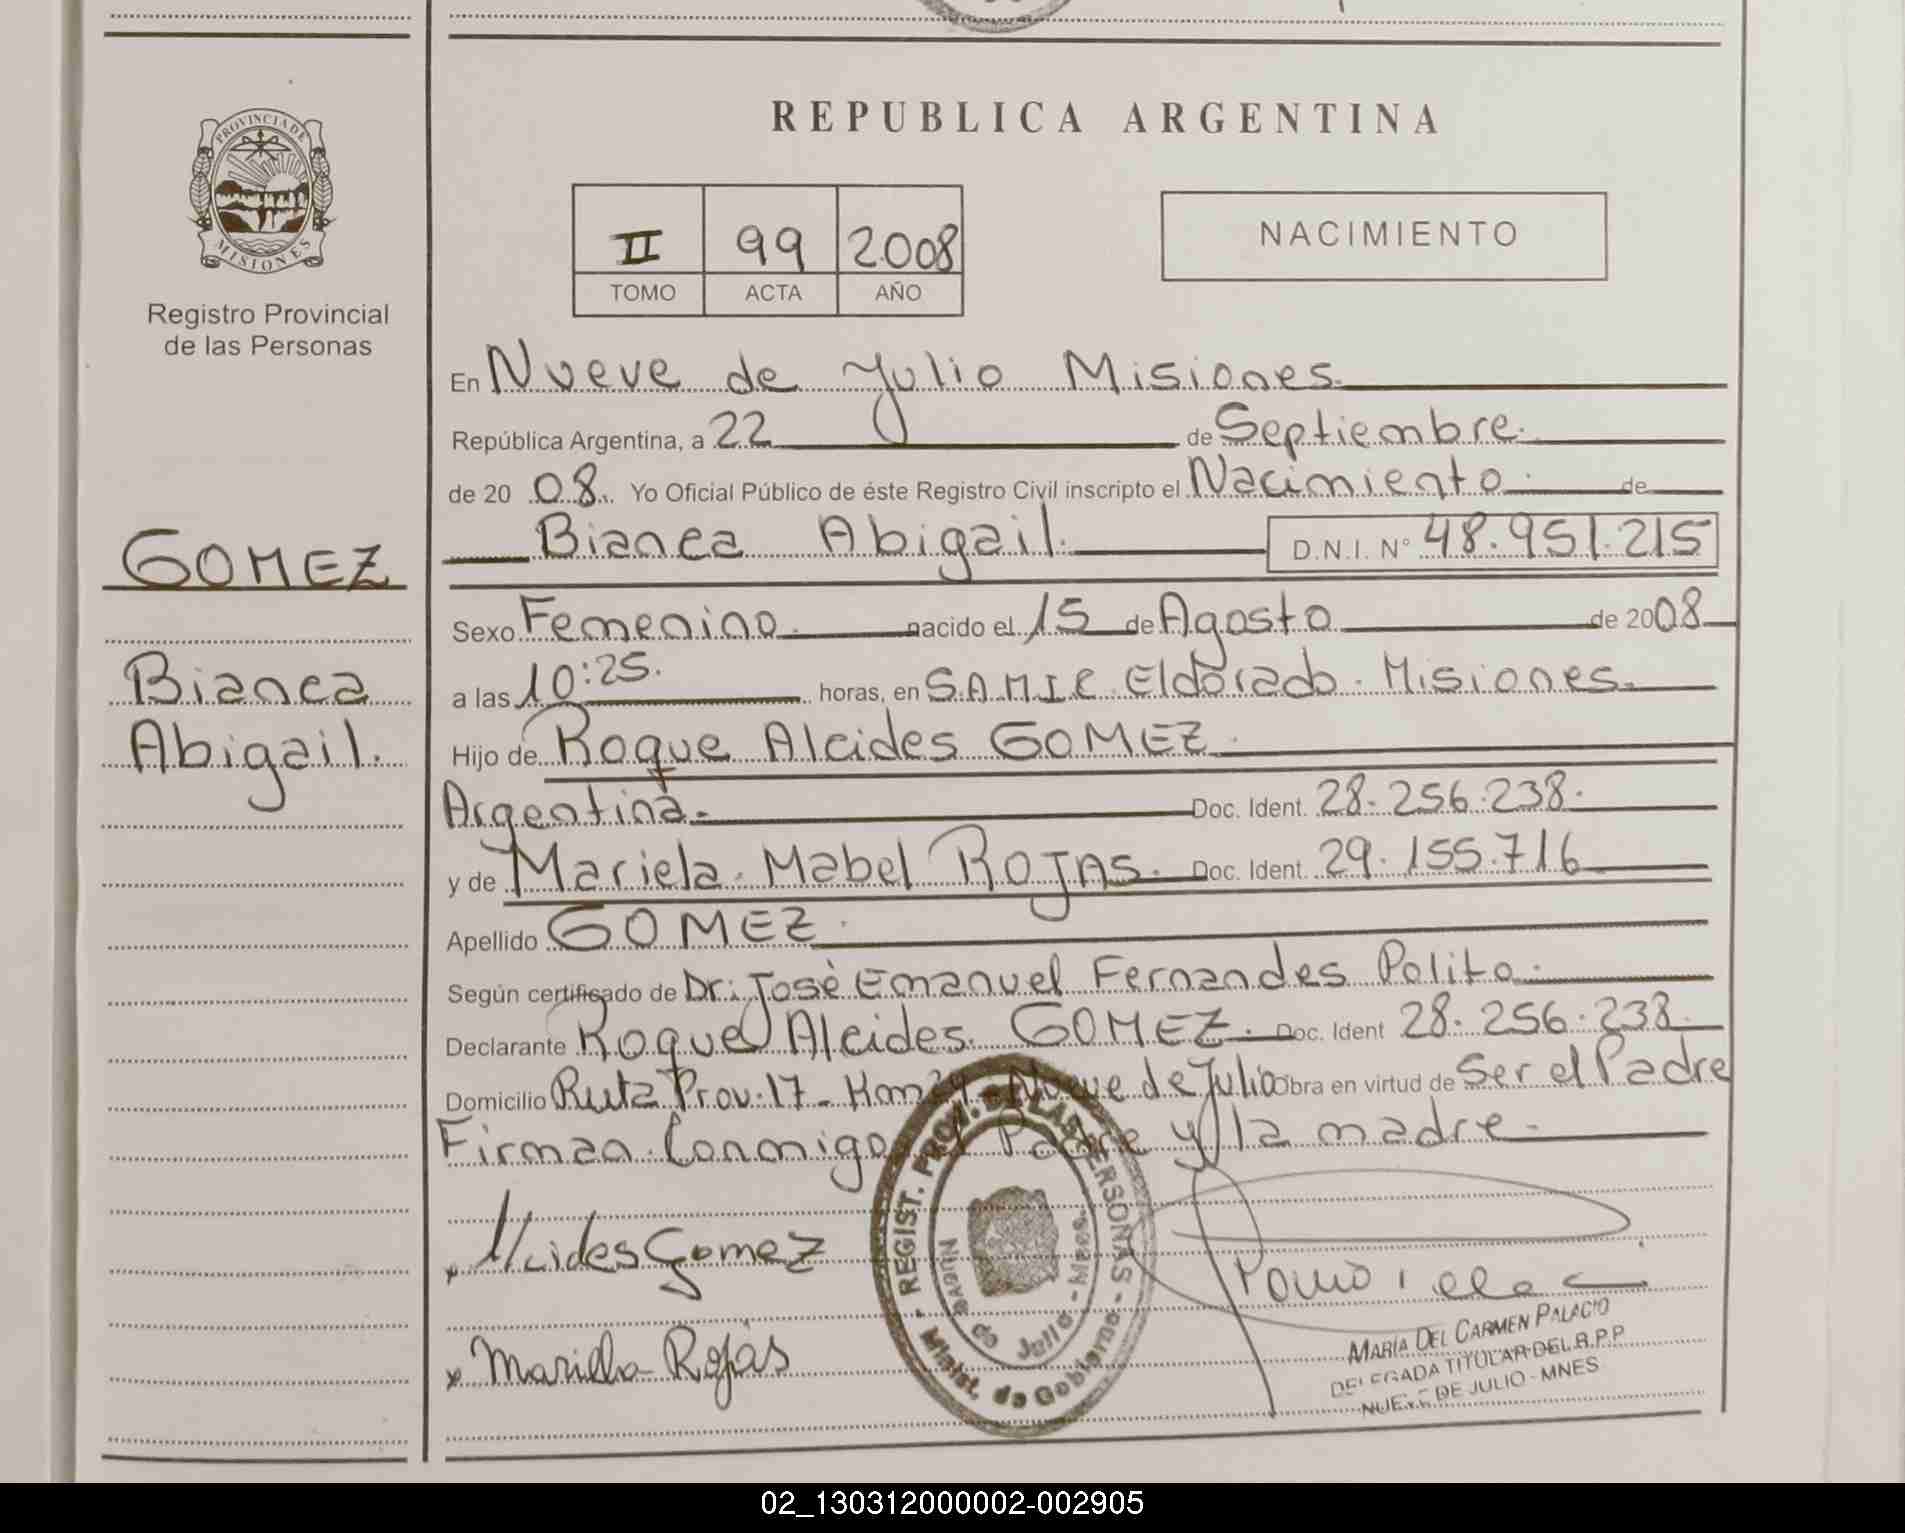 REPUBLICA ARGENTINA
PROVINCIA DE
MISIONES
Registro Provincial
de las Personas
II 99 2008
TOMO ACTA AÑO
NACIMIENTO
En Nueve de Julio Misiones
República Argentina, a 22 de Septiembre
de 20 08 Yo Oficial Público de éste Registro Civil inscripto el Nacimiento de
Bianca Abigail. D.N.I. N° 48.951.215
GOMEZ
Bianca
Abigail.
Sexo Femenino nacido el 15 de Agosto de 2008
a las 10:25. horas, en S.A.M.I.C. Eldorado. Misiones.
Hijo de Roque Alcides GOMEZ
Argentina. Doc. Ident. 28.256.238.
y de Mariela Mabel ROJAS. Doc. Ident. 29.155.716
Apellido GOMEZ.
Según certificado de Dr: José Emanuel Fernandes Polito.
Declarante Roque Alcides GOMEZ. Doc. Ident 28.256.238.
Domicilio Ruta Prov. 17 - Nueve de Julio Obra en virtud de Ser el Padre
Firman Conmigo el Padre y la madre.
x Alcides Gomez
x Mariela Rojas
REGIST. PROV. DE LAS PERSONAS - Minist. de Gobierno
Nueve de Julio - Mnes.
MARÍA DEL CARMEN PALACIO
DELEGADA TITULAR DEL R.P.P
NUEVE DE JULIO - MNES
02_130312000002-002905